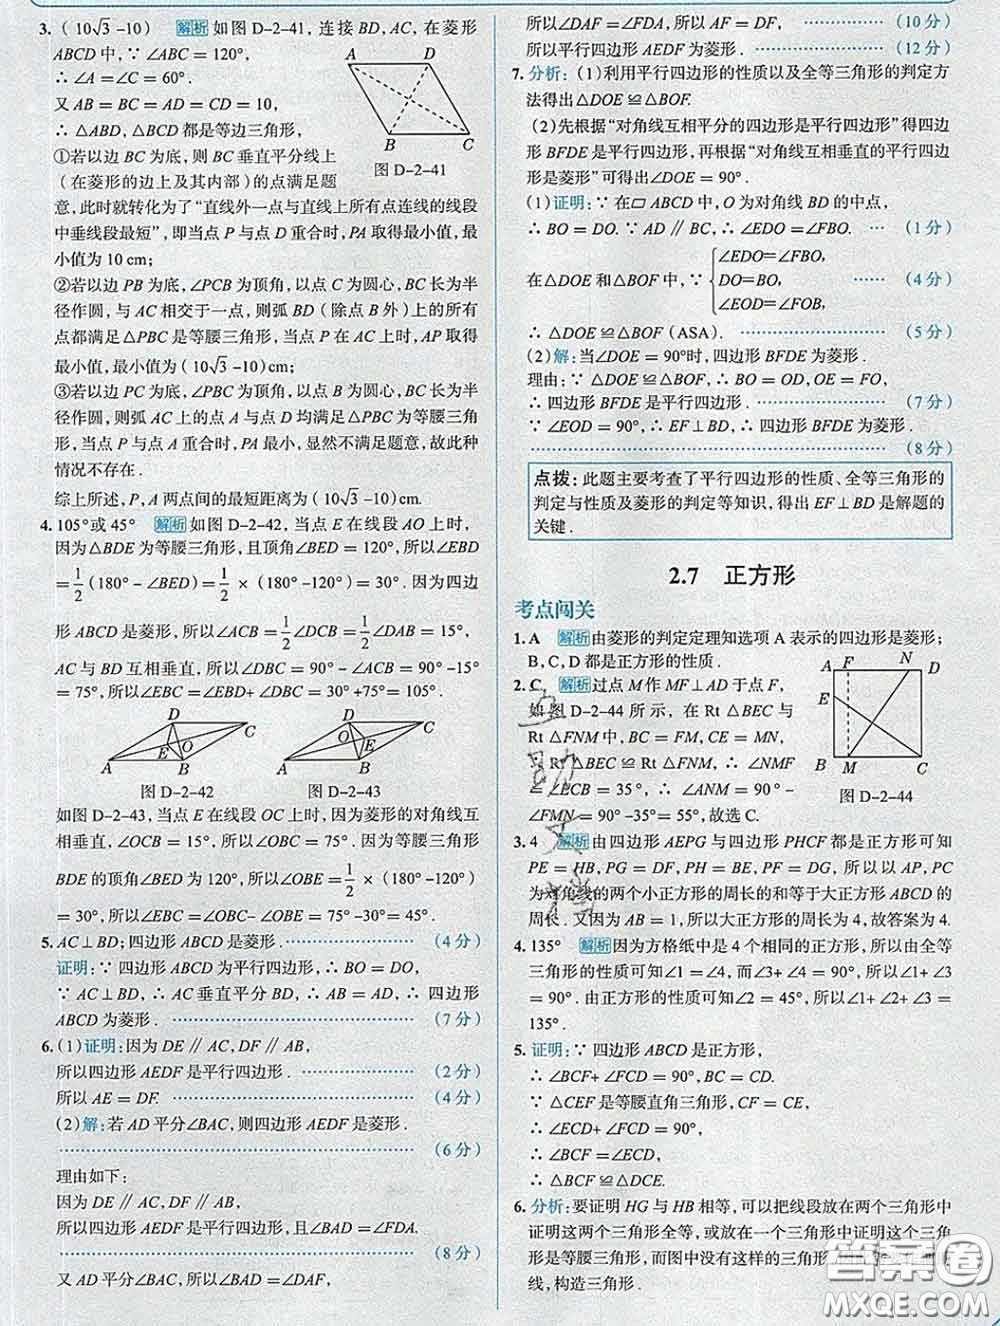 3. (10√3 -10) 解析 如图 D-2-41, 连接 BD, AC, 在菱形
ABCD 中, ∵ ∠ABC = 120°,
∴ ∠A = ∠C = 60°.
又 AB = BC = AD = CD = 10,
∴ △ABD, △BCD 都是等边三角形,
①若以边 BC 为底, 则 BC 垂直平分线上
(在菱形的边上及其内部) 的点满足题
A D B C
图 D-2-41
意, 此时就转化为了“直线外一点与直线上所有点连线的线段
中垂线段最短”, 即当点 P 与点 D 重合时, PA 取得最小值, 最
小值为 10 cm;
②若以边 PB 为底, ∠PCB 为顶角, 以点 C 为圆心, BC 长为半
径作圆, 与 AC 相交于一点, 则弧 BD (除点 B 外) 上的所有
点都满足△PBC 是等腰三角形, 当点 P 在 AC 上时, AP 取得
最小值, 最小值为 (10√3 -10)cm;
③若以边 PC 为底, ∠PBC 为顶角, 以点 B 为圆心, BC 长为半
径作圆, 则弧 AC 上的点 A 与点 D 均满足△PBC 为等腰三角
形, 当点 P 与点 A 重合时, PA 最小, 显然不满足题意, 故此种
情况不存在.
综上所述, P, A 两点间的最短距离为 (10√3 -10)cm.
4. 105°或 45° 解析 如图 D-2-42, 当点 E 在线段 AO 上时,
因为△BDE 为等腰三角形, 且顶角∠BED = 120°, 所以∠EBD
= 1/2 (180° - ∠BED) = 1/2 × (180° -120°) = 30°. 因为四边
形 ABCD 是菱形, 所以∠ACB = 1/2 ∠DCB = 1/2 ∠DAB = 15°,
AC 与 BD 互相垂直, 所以∠DBC = 90° - ∠ACB = 90° -15°
= 75°, 所以∠EBC = ∠EBD+ ∠DBC = 30° +75° = 105°.
A B C D E O
图 D-2-42
A B C D E O
图 D-2-43
如图 D-2-43, 当点 E 在线段 OC 上时, 因为菱形的对角线互
相垂直, ∠OCB = 15°, 所以∠OBC = 75°. 因为等腰三角形
BDE 的顶角∠BED 为 120°, 所以∠OBE = 1/2 × (180° -120°)
= 30°, 所以∠EBC = ∠OBC- ∠OBE = 75° -30° = 45°.
5. AC⊥BD; 四边形 ABCD 是菱形. (4 分)
证明: ∵ 四边形 ABCD 为平行四边形, ∴ BO = DO,
∵ AC⊥BD, ∴ AC 垂直平分 BD, ∴ AB = AD, ∴ 四边形
ABCD 为菱形. (7 分)
6. (1) 证明: 因为 DE∥AC, DF∥AB,
所以四边形 AEDF 是平行四边形. (2 分)
所以 AE = DF. (4 分)
(2) 解: 若 AD 平分∠BAC, 则四边形 AEDF 是菱形.
(6 分)
理由如下:
因为 DE∥AC, DF∥AB,
所以四边形 AEDF 是平行四边形, 且∠BAD = ∠FDA.
(8 分)
又 AD 平分∠BAC, 所以∠BAD = ∠DAF,
所以∠DAF = ∠FDA, 所以 AF = DF, (10 分)
所以平行四边形 AEDF 为菱形. (12 分)
7. 分析: (1) 利用平行四边形的性质以及全等三角形的判定方
法得出△DOE≌△BOF.
(2) 先根据“对角线互相平分的四边形是平行四边形”得四边
形 BFDE 是平行四边形, 再根据“对角线互相垂直的平行四边
形是菱形”可得出∠DOE = 90°.
(1) 证明: ∵ 在▱ABCD 中, O 为对角线 BD 的中点,
∴ BO = DO. ∵ AD∥BC, ∴ ∠EDO = ∠FBO. (1 分)
∠EDO=∠FBO,
在△DOE 和△BOF 中, ∵ { DO=BO, (4 分)
∠EOD=∠FOB,
∴ △DOE≌△BOF (ASA). (5 分)
(2) 解: 当∠DOE = 90°时, 四边形 BFDE 为菱形.
理由: ∵ △DOE≌△BOF, ∴ BO = OD, OE = FO,
∴ 四边形 BFDE 是平行四边形. (7 分)
∵ ∠EOD = 90°, ∴ EF⊥BD, ∴ 四边形 BFDE 为菱形.
(8 分)
点拨: 此题主要考查了平行四边形的性质、全等三角形的
判定与性质及菱形的判定等知识, 得出 EF⊥BD 是解题的
关键.
2.7 正方形
考点闯关
1. A 解析 由菱形的判定定理知选项 A 表示的四边形是菱形;
B, C, D 都是正方形的性质.
2. C 解析 过点 M 作 MF⊥AD 于点 F,
如图 D-2-44 所示, 在 Rt △BEC 与
Rt △FNM 中, BC = FM, CE = MN,
∴ Rt △BEC ≌ Rt △FNM, ∴ ∠NMF
= ∠ECB = 35°, ∴ ∠ANM = 90° -
∠FMN = 90° -35° = 55°, 故选 C.
A F N D E B M C
图 D-2-44
3. 4 解析 由四边形 AEPG 与四边形 PHCF 都是正方形可知
PE = HB, PG = DF, PH = BE, PF = DG, 所以以 AP, PC
为对角线的两个小正方形的周长的和等于大正方形 ABCD 的
周长. 又因为 AB = 1, 所以大正方形的周长为 4, 故答案为 4.
4. 135° 解析 因为方格纸中是 4 个相同的正方形, 所以由全等
三角形的性质可知∠1 = ∠4, 而∠3+ ∠4 = 90°, 所以∠1+ ∠3
= 90°. 由正方形的性质可知∠2 = 45°, 所以∠1+ ∠2+ ∠3 =
135°.
5. 证明: ∵ 四边形 ABCD 是正方形,
∴ ∠BCF+ ∠FCD = 90°, BC = CD.
∵ △CEF 是等腰直角三角形, CF = CE,
∴ ∠ECD+ ∠FCD = 90°,
∴ ∠BCF = ∠ECD,
∴ △BCF≌△DCE.
6. 分析: 要证明 HG 与 HB 相等, 可以把线段放在两个三角形中
证明这两个三角形全等, 或放在一个三角形中证明这个三角
形是等腰三角形, 而图中没有这样的三角形
线, 构造三角形.
答案圈
MXQE.COM